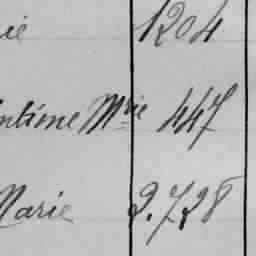 ie 1204
ntime Mrie 447
Marie 2.728